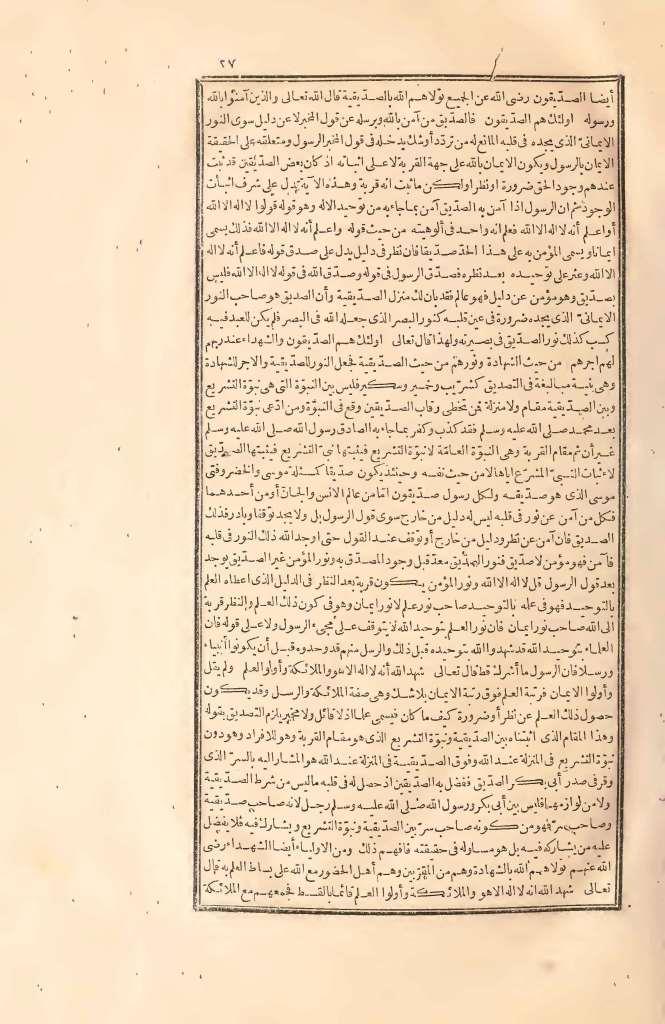 ٢٧
أيضا الصديقون رضى الله عن الجميع تولاهم الله بالصديقية قال الله تعالى والذين آمنوا بالله
ورسوله اولئك هم الصديقون فالصديق من آمن بالله وبرسله عن قول المخبر لا عن دليل سوى النور
الايمانى الذى يجده فى قلبه المانع له من تردد أو شك يدخله فى قول المخبر الرسول ومتعلقه على الحقيقة
الايمان بالرسول ويكون الايمان بالله على جهة القربة لا على اثباته اذ كان بعض الصديقين قد ثبت
عندهم وجود الحق ضرورة او نظرا ولكن ما ثبت انه قربة وهذه الآية تدل على شرف اثبات
الوجود ثم ان الرسول اذا آمن به الصديق آمن بما جاء به من توحيد الاله وهو قوله قولوا لا اله الا الله
أو اعلم أنه لا اله الا الله فعلم انه واحد فى ألوهيته من حيث قوله واعلم أنه لا اله الا الله فذلك يسمى
ايمانا ويسمى المؤمن به على هذا الحد صديقا فان نظر فى دليل يدل على صدق قوله فاعلم أنه لا اله
الا الله وعثر على توحيده بعد نظره فصدق الرسول فى قوله وصدق الله فى قوله لا اله الا الله فليس
بصديق وهو مؤمن عن دليل فهو عالم فقد بان لك منزل الصديقية وأن الصديق هو صاحب النور
الايمانى الذى يجده ضرورة فى عين قلبه كنور البصر الذى جعله الله فى البصر فلم يكن للعبد فيه
كسب كذلك نور الصديق فى بصيرته ولهذا قال تعالى اولئك هم الصديقون والشهداء عند ربهم
لهم اجرهم من حيث الشهادة ونورهم من حيث الصديقية فجعل النور للصديقية والاجر للشهادة
وهى بنية مبالغة فى التصديق كشريب وخمير وسكير فليس بين النبوة التى هى نبوة التشريع
وبين الصديقية مقام ولا منزلة فمن تخطى رقاب الصديقين وقع فى النبوة ومن ادعى نبوة التشريع
بعد محمد صلى الله عليه وسلم فقد كذب وكفر بما جاء به الصادق رسول الله صلى الله عليه وسلم
غير أن ثم مقام القربة وهى النبوة العامة لا نبوة التشريع فيثبتها نبى التشريع فيثبتها الصديق
لاثبات النبى المشرع اياها لا من حيث نفسه وحينئذ يكون صديقا كمسئلة موسى والخضر وفتى
موسى الذى هو صديقه ولكل رسول صديقون اما من عالم الانس والجان أو من أحدهما
فكل من آمن عن نور فى قلبه ليس له دليل من خارج سوى قول الرسول قل ولا يجد توقفا وبادر فذلك
الصديق فان آمن عن نظر ودليل من خارج أو توقف عند القول حتى اوجد الله ذلك النور فى قلبه
فآمن فهو مؤمن لا صديق فنور الصديق معد قبل وجود المصدق به ونور المؤمن غير الصديق يوجد
بعد قول الرسول قل لا اله الا الله ونور المؤمن يكون قربة بعد النظر فى الدليل الذى اعطاه العلم
بالتوحيد فهو فى علمه بالتوحيد صاحب نور علم لا نور ايمان وهو فى كون ذلك العلم والنظر قربة
الى الله صاحب نور ايمان فان نور العلم بتوحيد الله لا يتوقف على مجىء الرسول ولا على قوله فان
العلماء بتوحيد الله قد شهدوا الله بتوحيده قبل ذلك والرسل منهم قد وحدوه قبل أن يكونوا انبياء
ورسلا فان الرسول ما أشرك قط قال تعالى شهد الله أنه لا اله الا هو والملائكة وأولوا العلم ولم يقل
وأولوا الايمان فرتبة العلم فوق رتبة الايمان بلا شك وهى صفة الملائكة والرسل وقد يكون
حصول ذلك العلم عن نظر أو ضرورة كيف ما كان فيسمى علما اذ لا قائل ولا مخبر يلزم التصديق بقوله
وهذا المقام الذى اثبتناه بين الصديقية ونبوة التشريع الذى هو مقام القربة وهو للافراد وهو دون
نبوة التشريع فى المنزلة عند الله وفوق الصديقية فى المنزلة عند الله هو المشار اليه بالسر الذى
وقر فى صدر أبى بكر الصديق ففضل به الصديقين اذ حصل له فى قلبه ما ليس من شرط الصديقية
ولا من لوازمها فليس بين أبى بكر ورسول الله صلى الله عليه وسلم رجل لانه صاحب صديقية
وصاحب سر فهو من كونه صاحب سر بين الصديقية ونبوة التشريع ويشارك فيه فلا يفضل
عليه من يشاركه فيه بل هو مساو له فى حقيقته فافهم ذلك ومن الاولياء أيضا الشهداء رضى
الله عنهم تولاهم الله بالشهادة وهم من المقربين وهم أهل الحضور مع الله على بساط العلم به قال
تعالى شهد الله انه لا اله الا هو والملائكة وأولوا العلم قائما بالقسط فجمعهم مع الملائكة